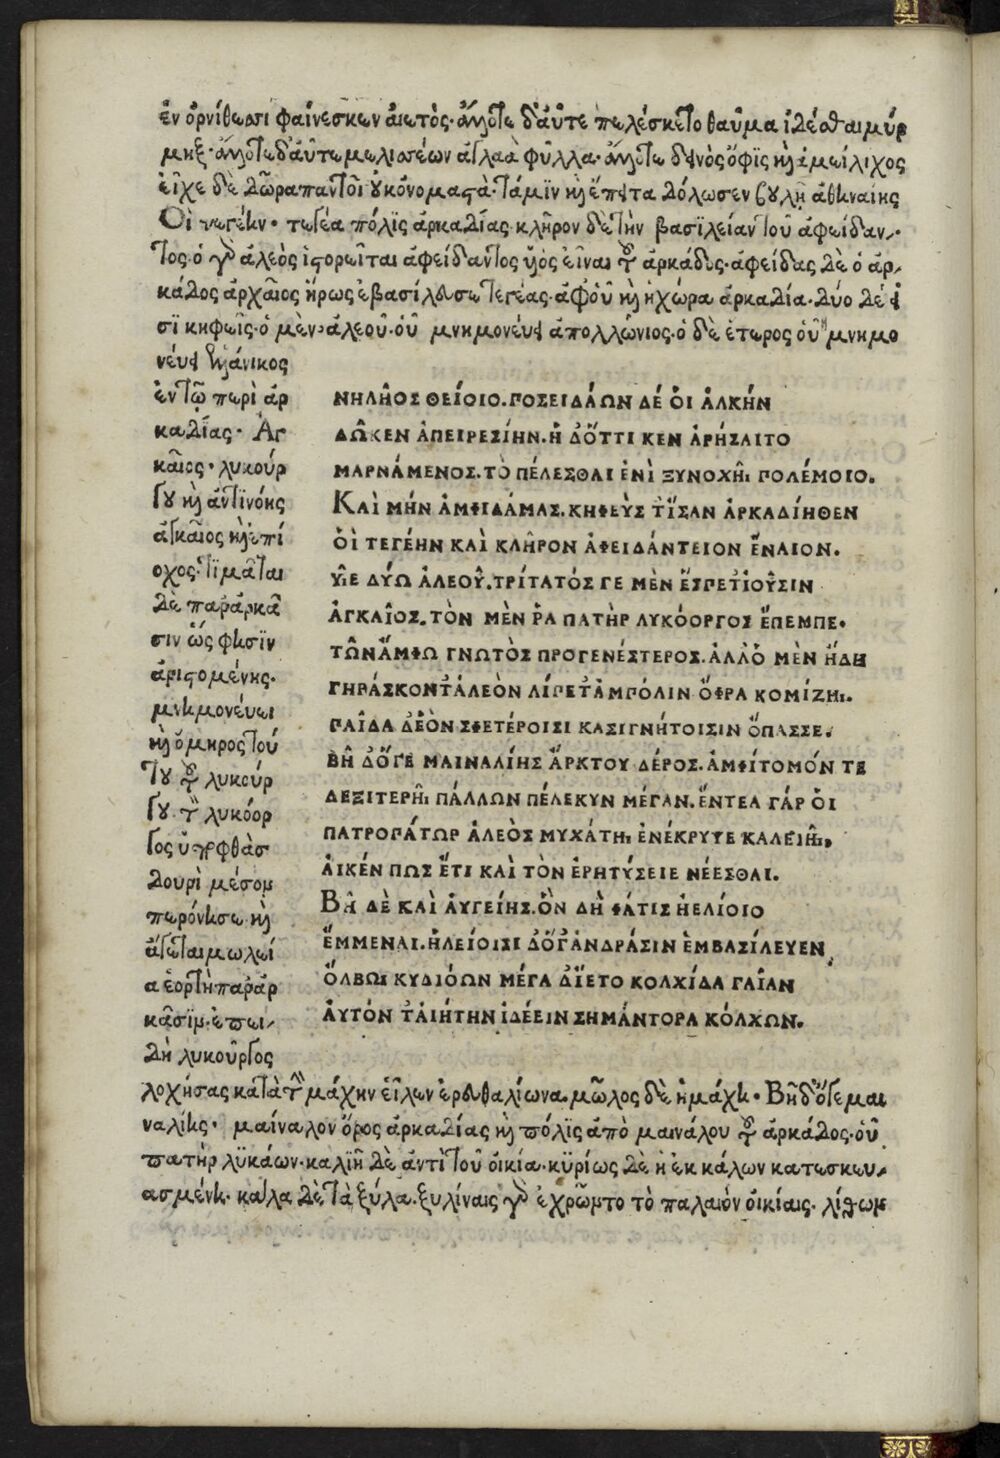 ἐν ὀρνίθωσι φαίνεσκων αἰωτὸς· ἄλλοτε δ' αὖτε πωλέσκετο θαῦμα ἰδέσθαι μύρ
μηξ· ἄλλοτε δ' αὖτω μωλισσέων ἀγλαὰ φῦλλα· ἄλλοτε δεινὸς ὄφϊς καὶ ἀμείλιχος
εἶχε δὲ δῶρα παντοῖ οὐκ ὀνομαστὰ· τά μϊν καὶ ἔπειτα δόλωσεν βουλῇ ἀθηναίης
Οἱ τεγέην· τεγέα πόλϊς ἀρκαδίας· κλῆρον δὲ τὴν βασϊλείαν τοῦ ἀφείδαν
τος· ὁ γὰρ ἀλεὸς ἱστορεῖται ἀφείδαντος υἱὸς εἶναι τοῦ ἀρκάδος· ἀφείδας δὲ ὁ ἀρ
κάδος ἀρχαῖος ἥρως ἐβασίλευσε τεγέας· ἀφ' οὗ καὶ ἡ χώρα ἀρκαδία· δύο δέ εἰ
σϊ κηφεῖς· ὁ μὲν ἀλεοῦ· οὗ μνημονεύει ἀπολλώνιος· ὁ δὲ ἕτερος οὗ μνημο
νεύει ἑλλάνικος
ἐν τῷ περὶ ἀρ
καδίας· Ἀγ
καῖος· λυκούρ
γου καὶ ἀντϊνόης
ἀγκαῖος καὶ ἐπί
οχος· τϊμᾶται
δὲ παρ' ἀρκᾶ
σιν ὥς φησϊν
ἀριστομένης·
μνημονεύει
καὶ ὅμηρος τού
του τοῦ λυκούρ
γου· τὸν λυκόορ
γος
δουρὶ μέσομ
περόνησε καὶ
ἄγεται μωλεί
α ἑορτὴ παρ' ἀρ
κᾶσϊμ· ἐπει
δὴ λυκοῦργος
ΝΗΛΗ͂ΟΣ ΘΕΊΟΙΟ. ΠΟΣΕΙΔΆΩΝ ΔΈ ὉΙ ἈΛΚΉΝ
ΔΩ͂ΚΕΝ ἈΠΕΙΡΕΣΊΗΝ. Ἠ̓ ΔΌΤΤΙ ΚΕΝ ἈΡΉΣΑΙΤΟ
ΜΑΡΝΆΜΕΝΟΣ. ΤῸ ΠΈΛΕΣΘΑΙ ἘΝῚ ΞΥΝΟΧΗ͂Ι ΠΟΛΈΜΟΙΟ.
ΚΑῚ ΜΉΝ ἈΜΦΙΔΆΜΑΣ. ΚΗΦΕΎΣ Τ' ἼΣΑΝ ἈΡΚΑΔΊΗΘΕΝ
ὉῚ ΤΕΓΈΗΝ ΚΑῚ ΚΛΗ͂ΡΟΝ ἈΦΕΙΔΆΝΤΕΙΟΝ ἜΝΑΙΟΝ.
ΥἿΕ ΔΎΩ ἈΛΕΟΥ͂. ΤΡΊΤΑΤΌΣ ΓΕ ΜῈΝ ἝΣΠΕΤ' ἸΟΥ͂ΣΙΝ
ἈΓΚΑΙ͂ΟΣ. ΤῸΝ ΜῈΝ ῬΑ ΠΑΤῊΡ ΛΥΚΌΟΡΓΟΣ ἜΠΕΜΠΕ.
ΤΩ͂Ν ἌΜΦΩ ΓΝΩΤῸΣ ΠΡΟΓΕΝΈΣΤΕΡΟΣ. ἈΛΛ' Ὁ ΜῈΝ ἬΔΗ
ΓΗΡΆΣΚΟΝΤ' ἈΛΕῸΝ ΛΊΠΕΤ' ἈΜΠΌΛΙΝ ὌΦΡΑ ΚΟΜΊΖΗΙ.
ΠΑΙ͂ΔΑ Δ' ἙῸΝ ΣΦΕΤΈΡΟΙΣΙ ΚΑΣΙΓΝΉΤΟΙΣΙΝ ὌΠΑΣΣΕ.
ΒΗ͂ Δ' ὍΓΕ ΜΑΙΝΑΛΊΗΣ ἌΡΚΤΟΥ ΔΈΡΟΣ. ἈΜΦΊΤΟΜΌΝ ΤΕ
ΔΕΞΙΤΕΡΗ͂Ι ΠΆΛΛΩΝ ΠΈΛΕΚΥΝ ΜΈΓΑΝ. ἜΝΤΕΑ ΓΆΡ ὉΙ
ΠΑΤΡΟΠΆΤΩΡ ἈΛΕῸΣ ΜΥΧΆΤΗΙ ἘΝΈΚΡΥΨΕ ΚΑΛΙΗ͂Ι,
ἈΙΚΈΝ ΠΩΣ ἜΤΙ ΚΑῚ ΤῸΝ ἘΡΗΤΎΣΕΙΕ ΝΈΕΣΘΑΙ.
ΒΗ͂ ΔῈ ΚΑῚ ἈΥΓΕΊΗΣ. ὋΝ ΔῊ ΦΆΤΙΣ ἨΕΛΊΟΙΟ
ἜΜΜΕΝΑΙ. ἨΛΕΊΟΙΣΙ Δ' ὍΓ' ἈΝΔΡΆΣΙΝ ἘΜΒΑΣΊΛΕΥΕΝ
ὌΛΒΩΙ ΚΥΔΙΌΩΝ ΜΈΓΑ Δ' ἽΕΤΟ ΚΟΛΧΊΔΑ ΓΑΙ͂ΑΝ
ἈΥΤΌΝ Τ' ἈΙΉΤΗΝ ἸΔΈΕΙΝ ΣΗΜΆΝΤΟΡΑ ΚΌΛΧΩΝ.
λοχήσας κατὰ τὴν μάχην εἷλεν ἐρευθαλίωνα. μῶλος δὲ ἡ μάχη· Βῆ δ' ὅγε μαι
ναλίης· μαίναλον ὄρος ἀρκαδίας καὶ πόλϊς ἀπὸ μαινάλου τοῦ ἀρκάδος· οὗ
πατὴρ λϋκάων· καλϊὴ δὲ ἀντὶ τοῦ οἰκία· κϋρίως δὲ ἡ ἐκ κάλων κατεσκευ
ασμένη· κᾶλα δὲ τὰ ξύλα· ξυλίναις γὰρ ἐχρῶμτο τὸ παλαιόν οἰκίαις· λίθωμ